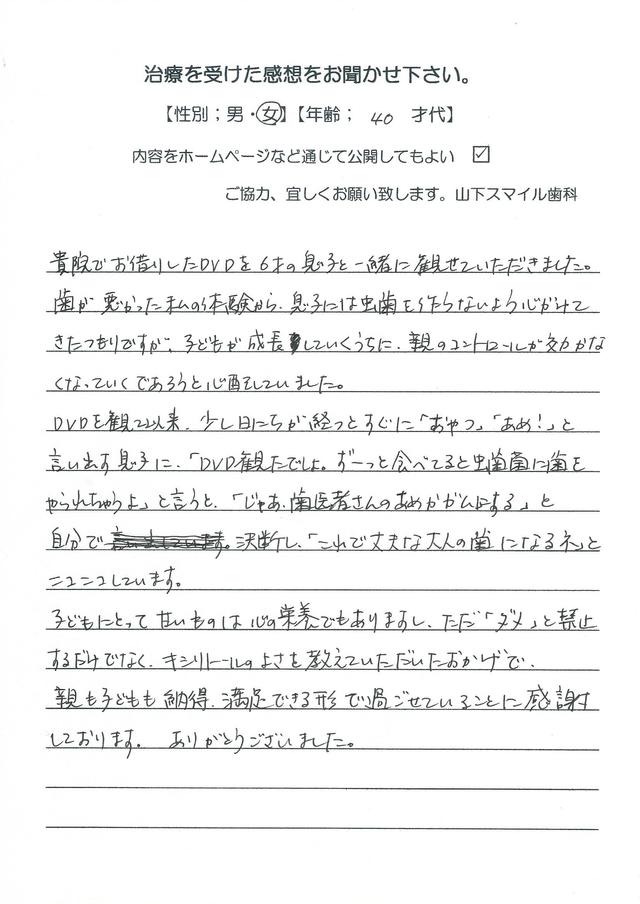 治療を受けた感想をお聞かせ下さい。
【性別；男・女】【年齢； 40 才代】
内容をホームページなど通じて公開してもよい ☑
ご協力、宜しくお願い致します。山下スマイル歯科
貴院でお借りしたDVDを6才の息子と一緒に観せていただきました。
歯が悪かった私の体験から、息子には虫歯を作らないよう心がけて
きたつもりですが、子どもが成長していくうちに、親のコントロールが効かな
くなっていくであろうと心配していました。
DVDを観て以来、少し日にちが経つとすぐに「おやつ」「あめ！」と
言い出す息子に、「DVD観たでしょ。ずーっと食べてると虫歯菌に歯を
やられちゃうよ」と言うと、「じゃあ、歯医者さんのあめかガムにする」と
自分で決断し、「これで丈夫な大人の歯になるネ」と
ニコニコしています。
子どもにとって甘いものは心の栄養でもありますし、ただ「ダメ」と禁止
するだけでなく、キシリトールのよさを教えていただいたおかげで、
親も子どもも納得、満足できる形で過ごせていることに感謝
しております。 ありがとうございました。